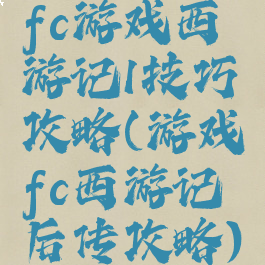 fc游戏西
游记1技巧
攻略(游戏
fc西游记
后传攻略)